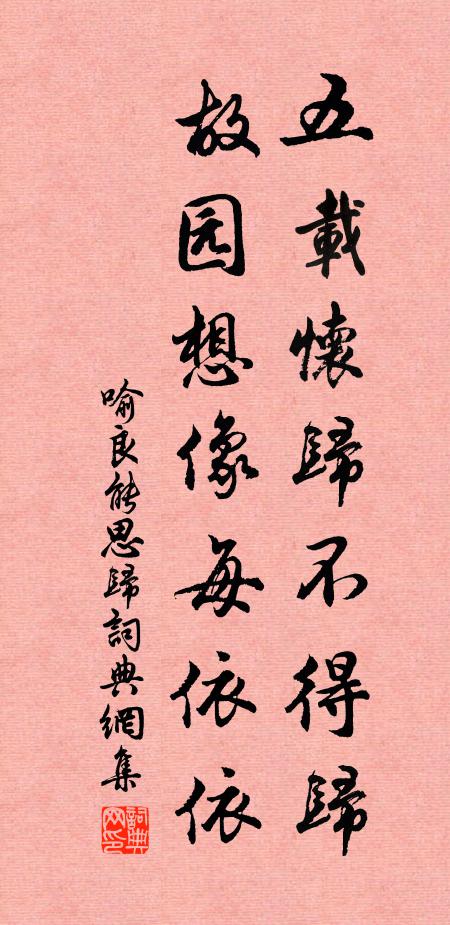 五載懷歸不得歸
故园想像每依依
喻良能思歸詞典網集
詞典网印